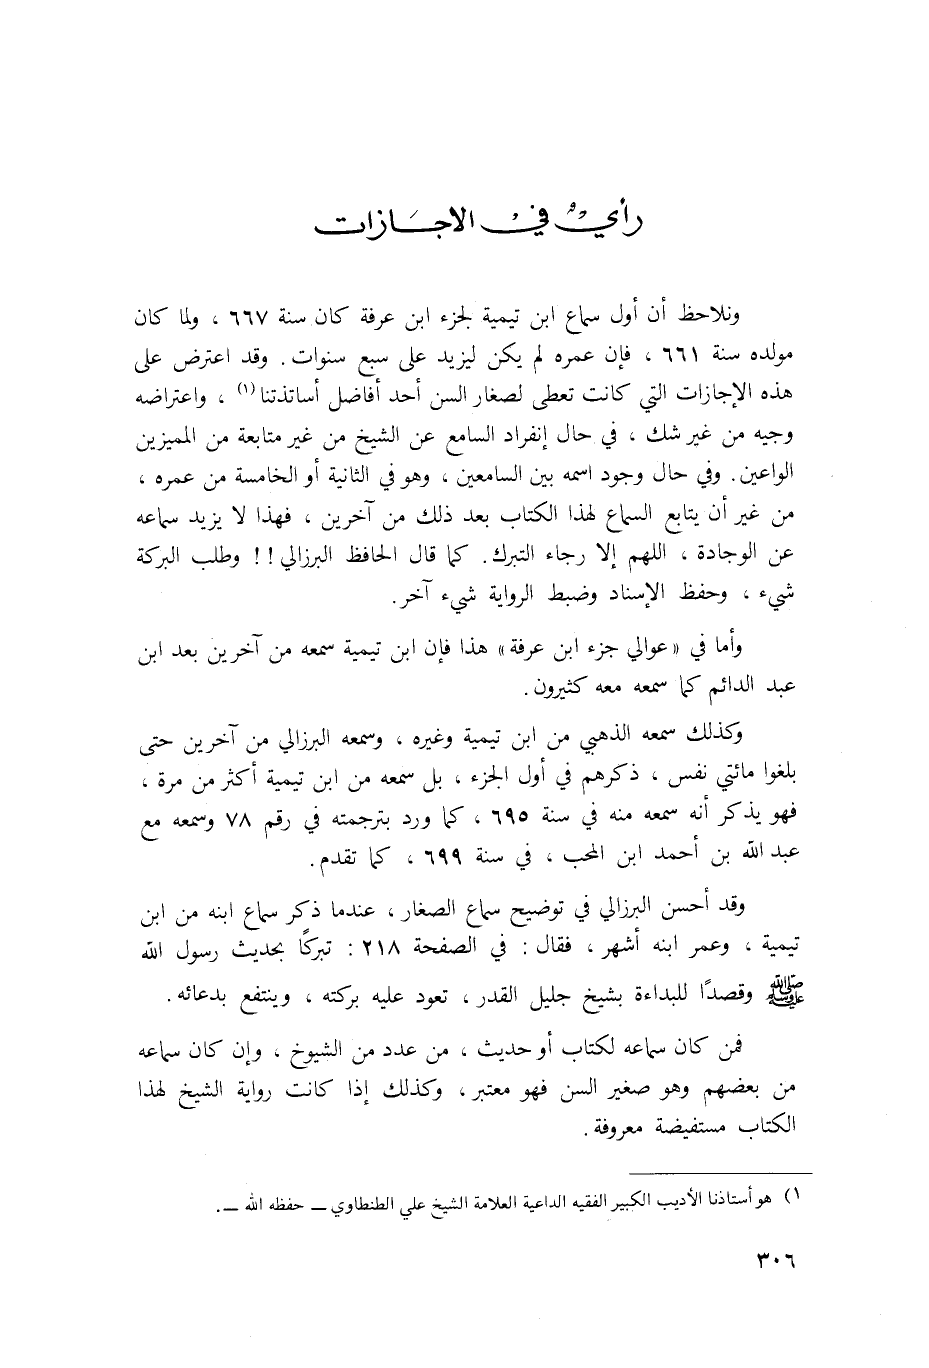 رأيٌ في الاجَازات
ونلاحظ أن أول سماع ابن تيمية لجزء ابن عرفة كان سنة ٦٦٧ ، ولما كان
مولده سنة ٦٦١ ، فإن عمره لم يكن ليزيد على سبع سنوات. وقد اعترض على
هذه الإجازات التي كانت تعطى لصغار السن أحد أفاضل أساتذتنا(١) ، واعتراضه
وجيه من غير شك ، في حال إنفراد السامع عن الشيخ من غير متابعة من المميزين
الواعين. وفي حال وجود اسمه بين السامعين ، وهو في الثانية أو الخامسة من عمره ،
من غير أن يتابع السماع لهذا الكتاب بعد ذلك من آخرين ، فهذا لا يزيد سماعه
عن الوجادة ، اللهم إلا رجاء التبرك. كما قال الحافظ البرزالي!! وطلب البركة
شيء ، وحفظ الإسناد وضبط الرواية شيء آخر.
وأما في «عوالي جزء ابن عرفة» هذا فإن ابن تيمية سمعه من آخرين بعد ابن
عبد الدائم كما سمعه معه كثيرون.
وكذلك سمعه الذهبي من ابن تيمية وغيره ، وسمعه البرزالي من آخرين حتى
بلغوا مائتي نفس ، ذكرهم في أول الجزء ، بل سمعه من ابن تيمية أكثر من مرة ،
فهو يذكر أنه سمعه منه في سنة ٦٩٥ ، كما ورد بترجمته في رقم ٧٨ وسمعه مع
عبد الله بن أحمد ابن المحب ، في سنة ٦٩٩ ، كما تقدم.
وقد أحسن البرزالي في توضيح سماع الصغار ، عندما ذكر سماع ابنه من ابن
تيمية ، وعمر ابنه أشهر ، فقال : في الصفحة ٢١٨ : تبركًا بحديث رسول الله
ﷺ وقصدًا للبداءة بشيخ جليل القدر ، تعود عليه بركته ، وينتفع بدعائه .
فمن كان سماعه لكتاب أو حديث ، من عدد من الشيوخ ، وإن كان سماعه
من بعضهم وهو صغير السن فهو معتبر ، وكذلك إذا كانت رواية الشيخ لهذا
الكتاب مستفيضة معروفة .
١) هو أستاذنا الأديب الكبير الفقيه الداعية العلامة الشيخ علي الطنطاوي – حفظه الله –.
٣٠٦